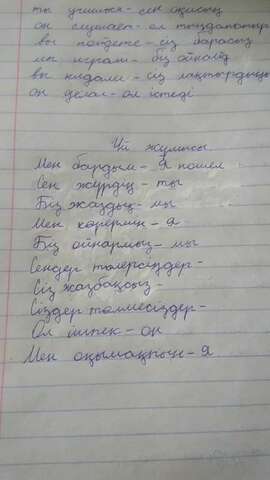 ты учишься - сен оқисың
он слушает - ол тыңдапотыр
вы пойдете - сіз барасыз
мы играли - біз ойнадық
вы кидали - сіз лақтырдыңыз
он делал - ол істеді
Үй жұмысы
Мен бардым - Я пошел
Сен жүрдің - ты
Біз жаздық - мы
Мен көрермін - Я
Біз ойнармыз - мы
Сендер төлерсіңдер -
Сіз жазбақсыз -
Сіздер төлмесіздер -
Ол ішпек - он
Мен оқымақпын - Я